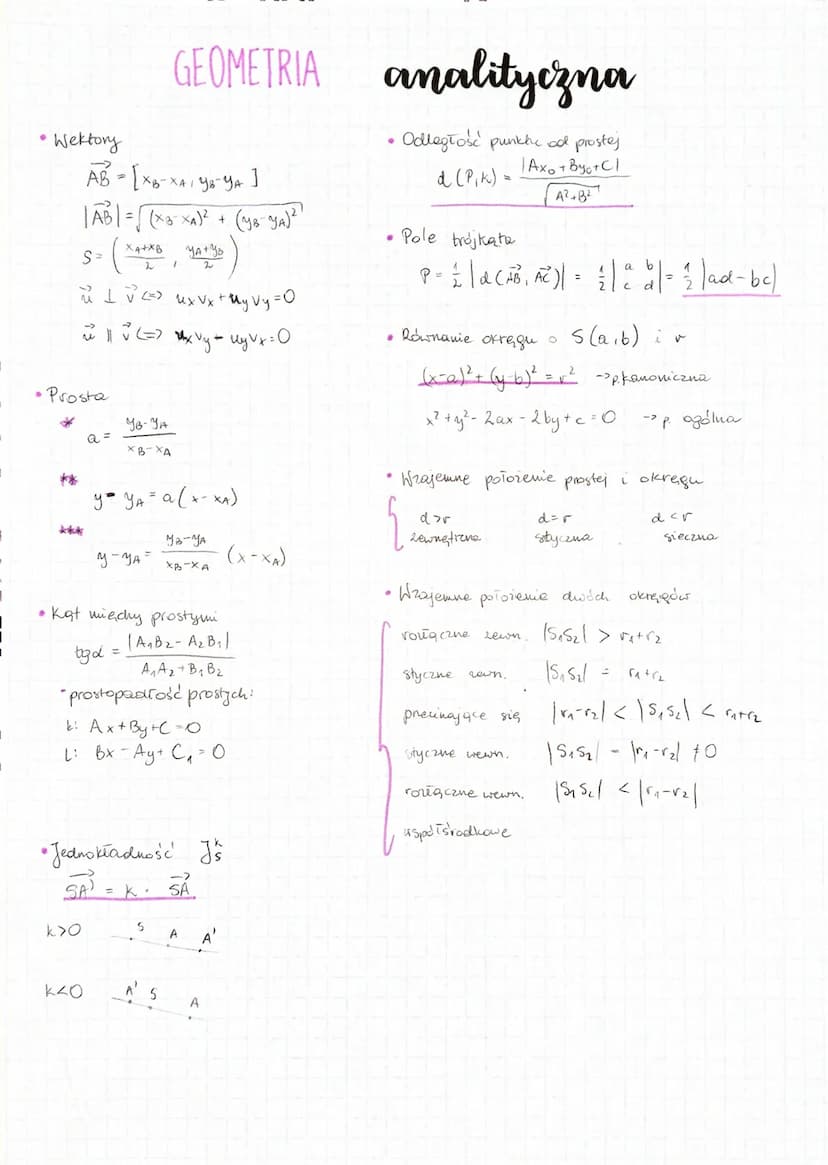 GEOMETRIA analityczna
• Wektory
AB→ = [x_B - x_A, y_B - y_A]
|AB→| = √((x_B - x_A)² + (y_B - y_A)²)
S = ((x_A + x_B)/2, (y_A + y_B)/2)
u→ ⊥ v→ <=> u_x v_x + u_y v_y = 0
u→ || v→ <=> u_x v_y - u_y v_x = 0
• Prosta
*
a = (y_B - y_A)/(x_B - x_A)
**
y - y_A = a(x - x_A)
***
y - y_A = (y_B - y_A)/(x_B - x_A) (x - x_A)
• Kąt między prostymi
tgα = |A₁B₂ - A₂B₁|/(A₁A₂ + B₁B₂)
• prostopadłość prostych:
k: Ax + By + C = 0
L: Bx - Ay + C₁ = 0
• Jednokładność J_S^k
SA'→ = k · SA→
k>0 S A A'
k<0 A' S A
• Odległość punktu od prostej
d(P,k) = |Ax₀ + By₀ + C|/√(A² + B²)
• Pole trójkąta
P = 1/2 |d(AB→, AC→)| = 1/2 |a b c d| = 1/2 |ad - bc|
• Równanie okręgu o S(a,b) i r
(x-a)² + (y-b)² = r² -> p. kanoniczna
x² + y² - 2ax - 2by + c = 0 -> p. ogólna
• Wzajemne położenie prostej i okręgu
d>r d=r d<r
zewnętrzna styczna sieczna
• Wzajemne położenie dwóch okręgów
rozłączne zewn. |S₁S₂| > r₁+r₂
styczne zewn. |S₁S₂| = r₁+r₂
przecinające się |r₁-r₂| < |S₁S₂| < r₁+r₂
styczne wewn. |S₁S₂| = |r₁-r₂| ≠ 0
rozłączne wewn. |S₁S₂| < |r₁-r₂|
współśrodkowe